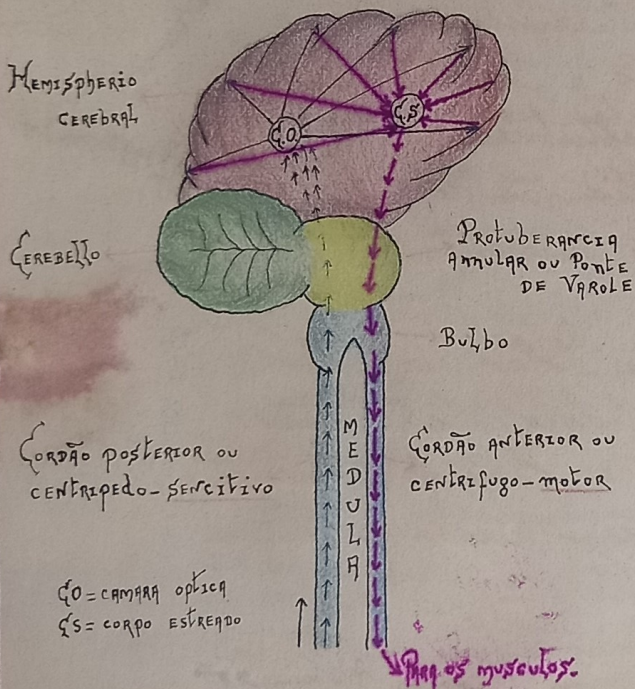 Hemispherio
cerebral
C.O
C.S
Cerebello
Protuberancia
annular ou Ponte
de Varole
Bulbo
Cordão posterior ou
centripedo-sencitivo
MEDULA
Cordão anterior ou
centrifugo-motor
CO=camara optica
CS=corpo estreado
Para os musculos.